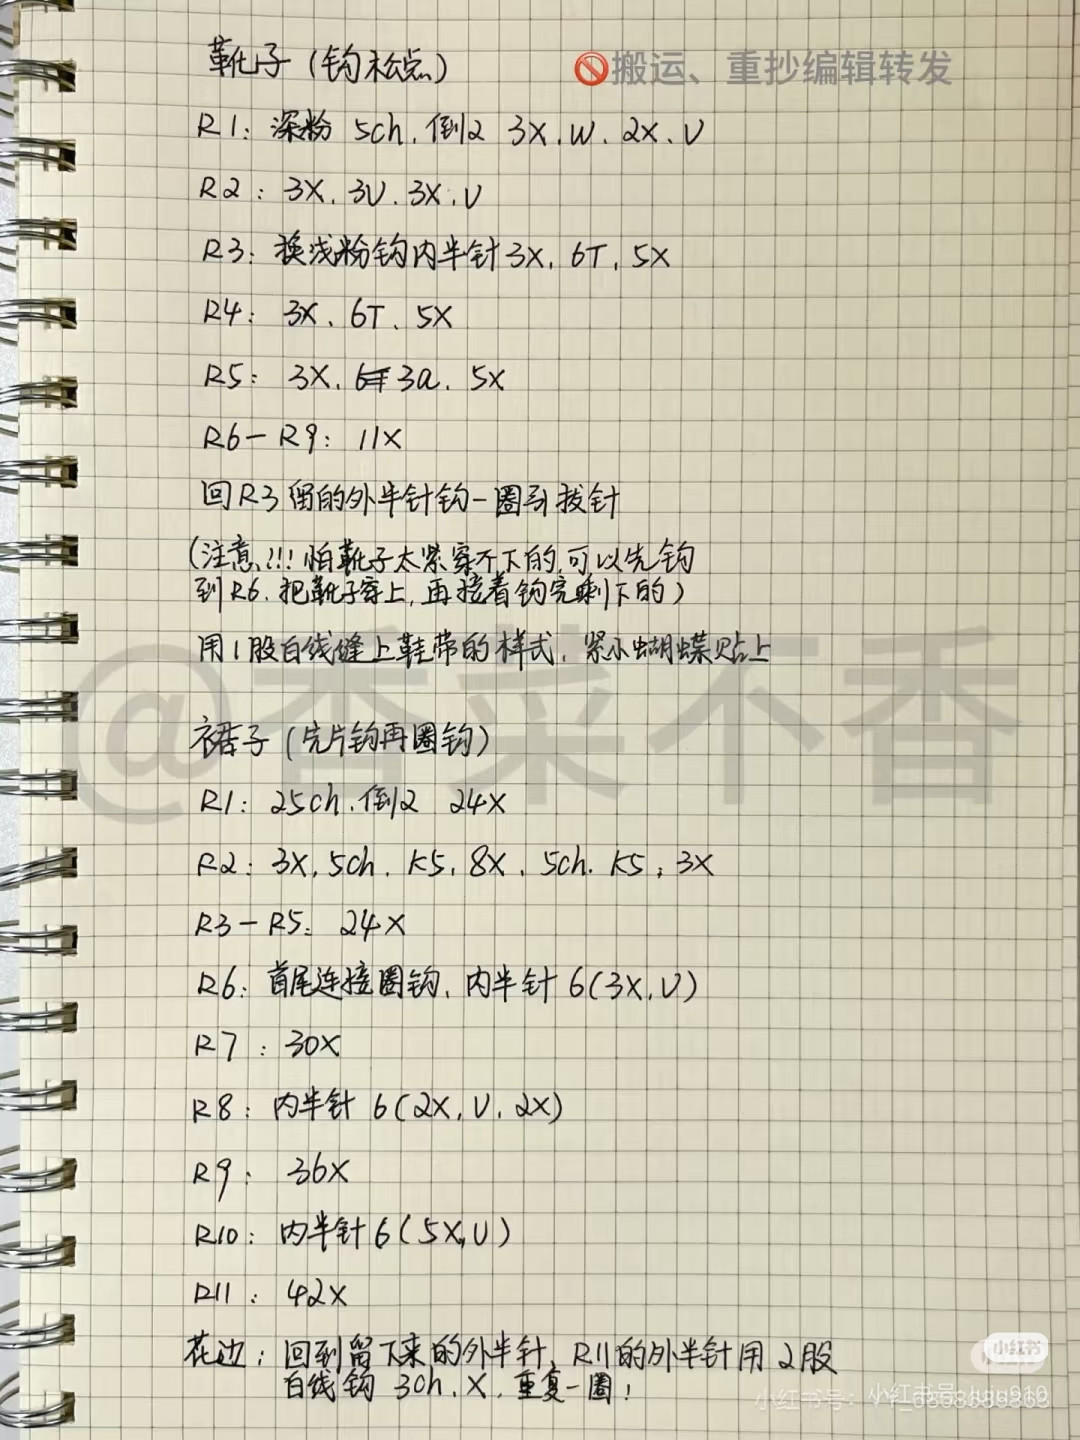 靴子（钩松点）
🚫搬运、重抄编辑转发
R1：深粉 5ch，倒2 3X，W，2X，V
R2：3X，3V，3X，V
R3：换浅粉钩内半针3X，6T，5X
R4：3X、6T、5X
R5：3X，3a，5X
R6－R9：11X
回R3留的外半针钩一圈引拔针
（注意！！！怕靴子太紧穿不下的，可以先钩
到R6，把靴子穿上，再接着钩完剩下的）
用1股白线缝上鞋带的样式，紧小蝴蝶贴上
@香菜不香
裙子（先片钩再圈钩）
R1：25ch，倒2 24X
R2：3X，5ch，K5，8X，5ch，K5，3X
R3－R5：24X
R6：首尾连接圈钩，内半针6（3X，V）
R7：30X
R8：内半针6（2X，V，2X）
R9：36X
R10：内半针6（5X，V）
R11：42X
花边：回到留下来的外半针，R11的外半针用2股
白线钩3ch，X，重复一圈！
小红书
小红书号：